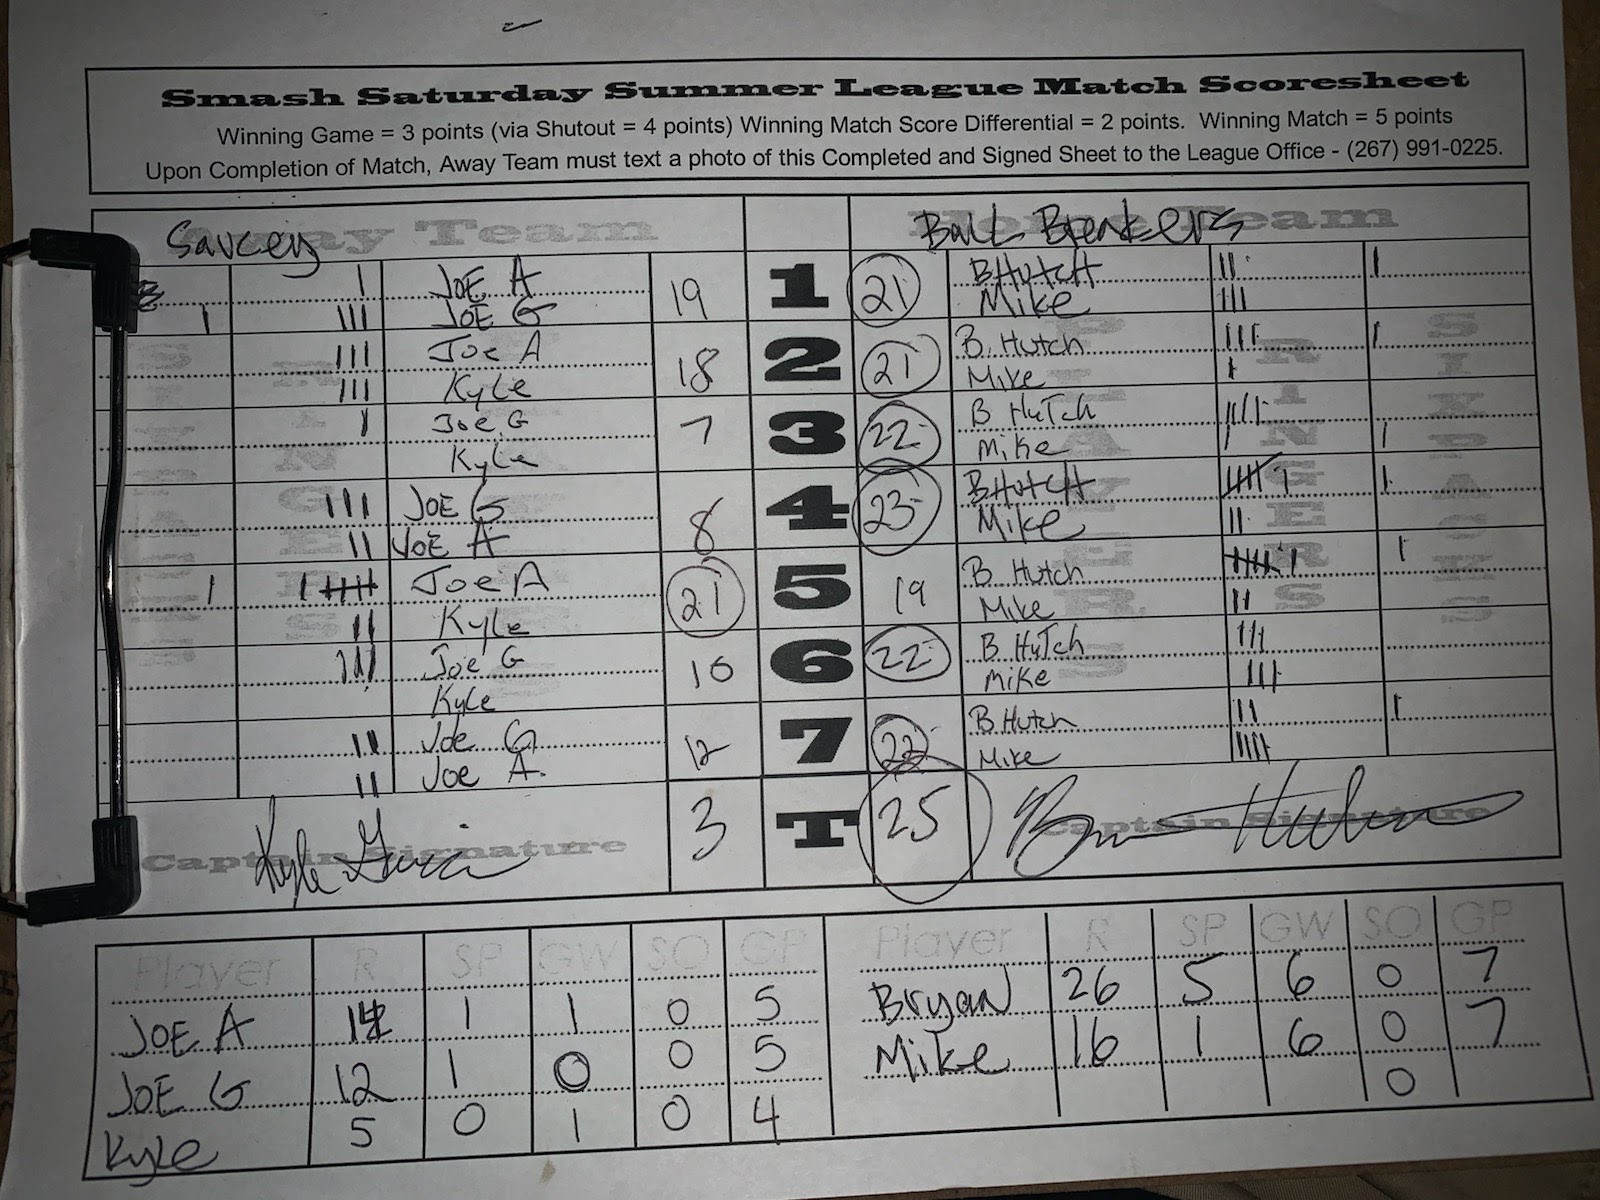 Smash Saturday Summer League Match Scoresheet
Winning Game = 3 points (via Shutout = 4 points) Winning Match Score Differential = 2 points. Winning Match = 5 points
Upon Completion of Match, Away Team must text a photo of this Completed and Signed Sheet to the League Office - (267) 991-0225.
Away Team Home Team
Saucey Ball Breakers
JOE A 19 1 21 B HUTCH
JOE G Mike
Joe A 18 2 21 B. Hutch
Kyle Mike
Joe G 7 3 22 B HuTch
Kyle Mike
JOE G 8 4 23 B HutcH
JOE A Mike
Joe A 21 5 19 B Hutch
Kyle Mike
Joe G 10 6 22 B HuTch
Kyle Mike
Joe G 12 7 22 B Hutch
Joe A. Mike
3 T 25
Captain Signature Captain Signature
Player R SP GW SO GP Player R SP GW SO GP
JOE A 1 1 0 5 Bryan 26 5 6 0 7
JOE G 12 1 0 0 5 Mike 16 1 6 0 7
Kyle 5 0 1 0 4 0